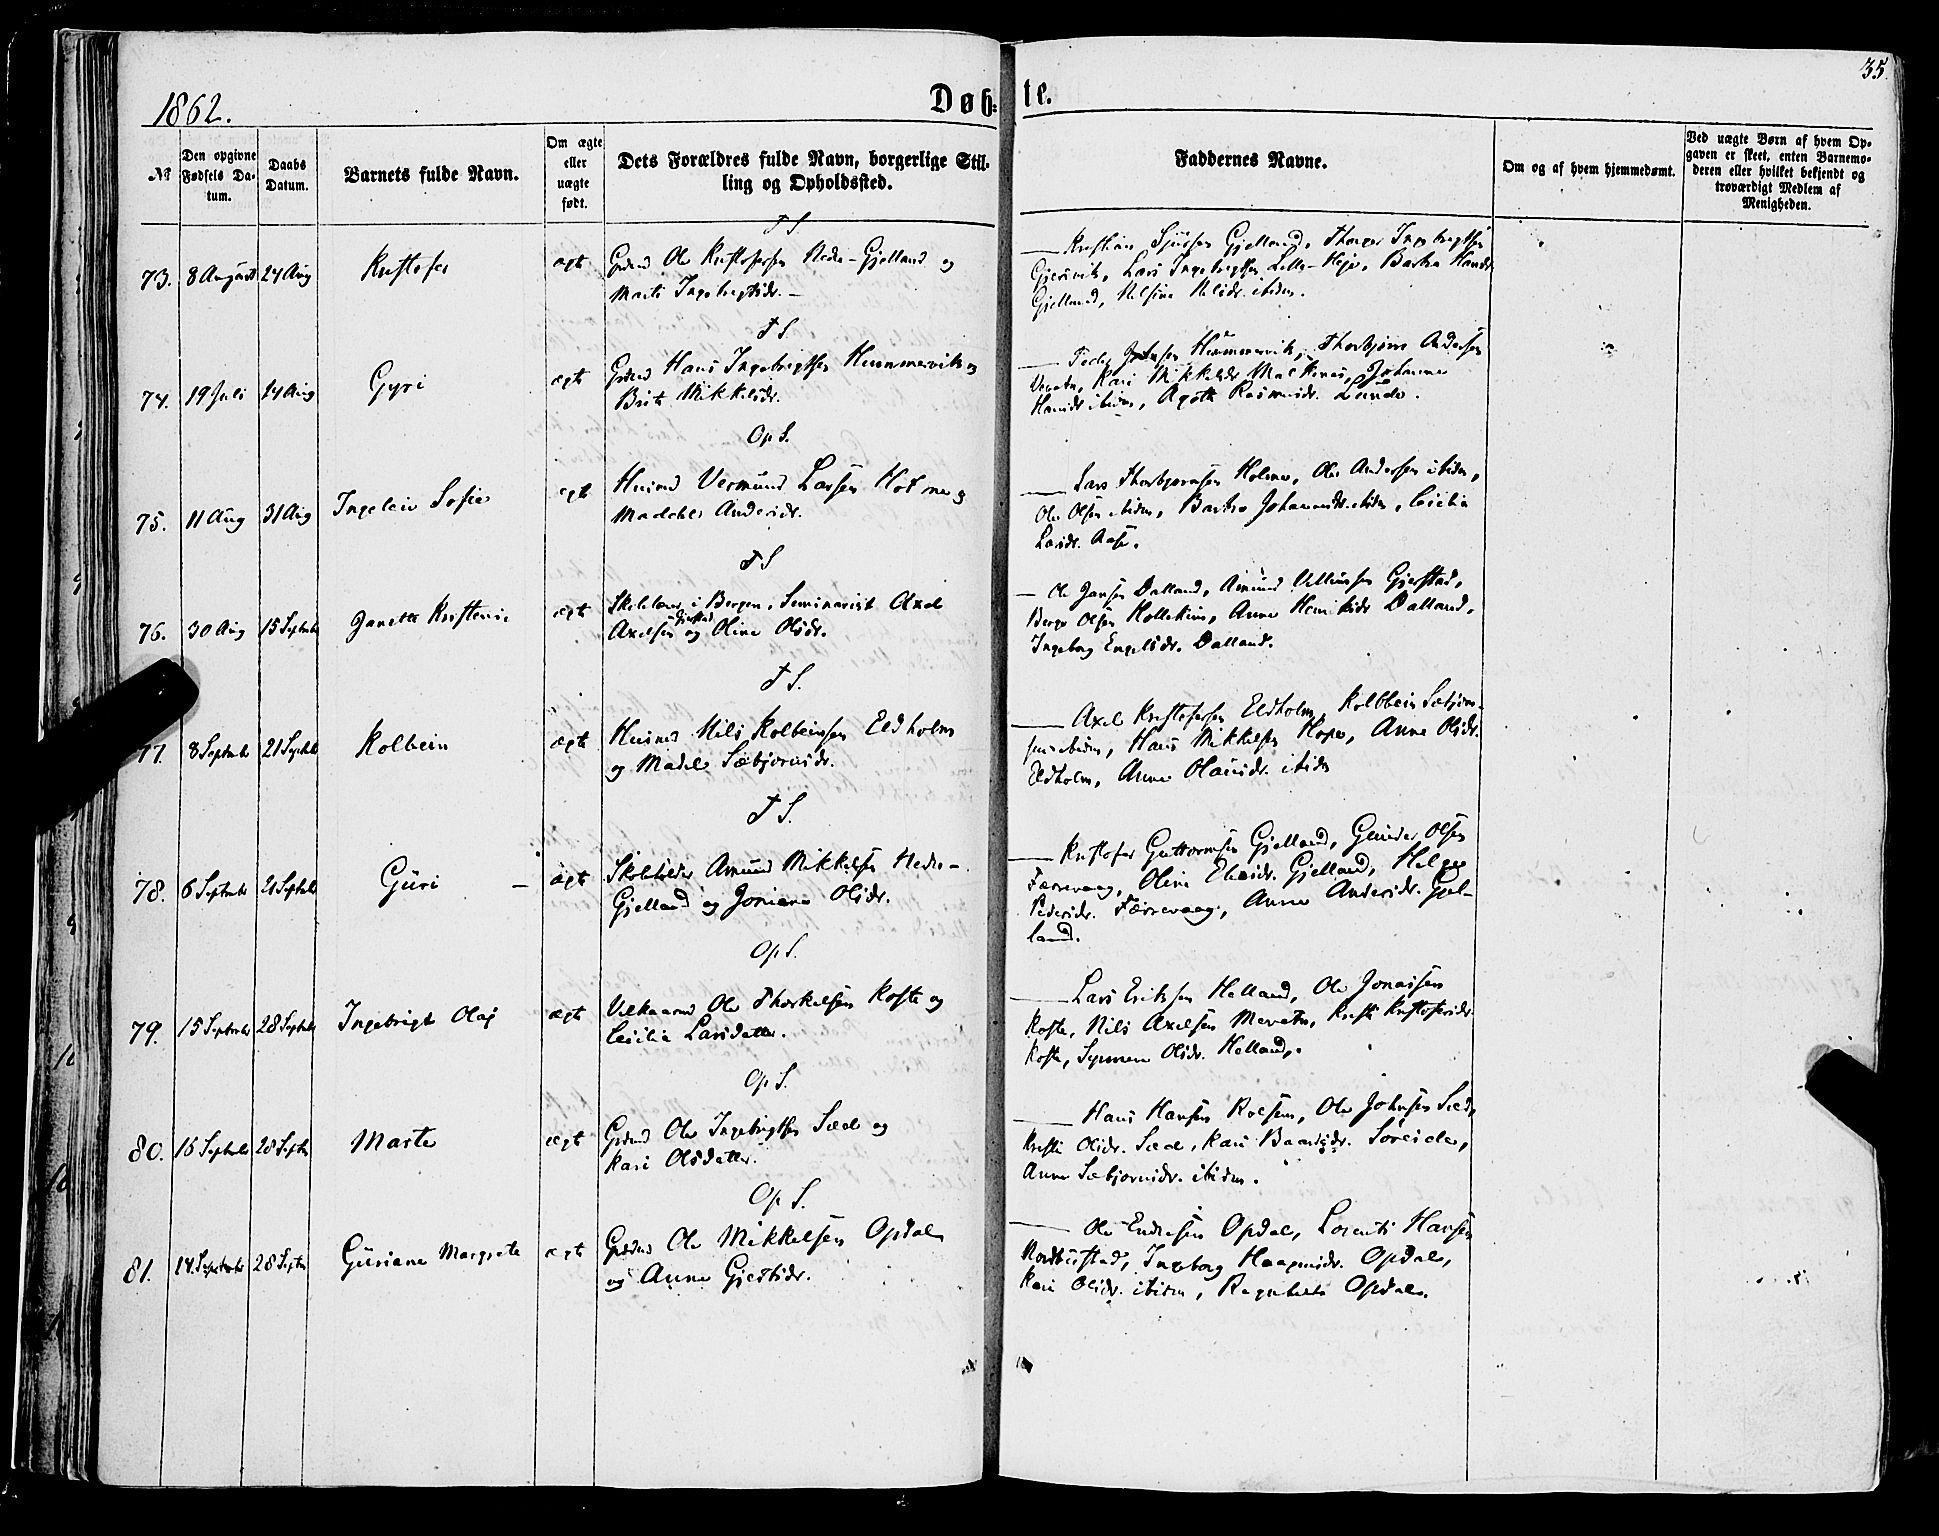 35.
1862.
Døb-
te.
№
Den opgivne Fødsels Datum.
Daabs Datum.
Barnets fulde Navn.
Om ægte eller uægte født.
Dets Forældres fulde Navn, borgerlige Stilling og Opholdssted.
Faddernes Navne.
Om og af hvem hjemmedømt.
Ved uægte Børn af hvem Opgaven er skeet, enten Barnemoderen eller hvilket bekjendt og troværdigt Medlem af Menigheden.
T S
73. 8 August 24 Aug Kristofer ægt Grdmd Ole Kristofersen Nedre-Gjelland og
Marte Ingebrigtsdr. –
Kristian Sjursen Gjelland, Thorger Ingebrigtsen
Gjersvik, Lars Ingebrigtsen Lille-Høje, Barbra Hansdr
Gjelland, Nilsine Nilsdr. ibidm.
T S.
74. 19 Juli 14 Aug Gyri ægt Grdmd Hans Ingebrigtsen Hummervik og
Brite Mikkelsdr.
Peder Johnsen Hummervik, Thorbjørn Andersen
Kari Mikkelsdr Malkenes, Johanne
Hansdr ibidm, Agotte Rasmusdr. Lunde.
Op S.
75. 11 Aug 31 Aug Ingeleiv Sofie ægt Husmd Vermund Larsen Holme og
Madele Andersdr.
Lars Thorbjørnsen Holme, Ole Andersen ibidm,
Ole Olsen ibidm, Barbro Johannesdr. ibidm, Cecilia
Larsdr. Aase.
T S
76. 30 Aug 15 Septmbr Janette Kristense ægt Skolelærer i Bergen, Seminarist Axel
Axelsen Gjerstad og Oline Olsdr.
Ole Jansen Dalland, Amund Villumsen Gjerstad,
Berge Olsen Hollekim, Anne Henriksdr Dalland,
Ingeborg Engelsdr. Dalland.
T S.
77. 8 Septmbr 21 Septmbr Kolbein ægt Husmd Nils Kolbeinsen Eldholm
og Madel Sæbjørnsdr.
Axel Kristofersen Eldholm, Kolbbein Sæbjørn-
sen ibidm, Hans Mikkelsen Hope, Anne Olsdr.
Eldholm, Anne Olausdr. ibidm
T S.
78. 6 Septmbr 21 Septmbr Guri – ægt Skoleholder Amund Mikkelsen Nedre-
Gjelland og Joniane Olsdr.
Kristofer Guttormsen Gjelland, Gunder Olsen
Færevaag, Oline Eliasdr. Gjelland, Helge
Pedersdr. Færevaag, Anne Andersdr. Gjel-
land.
Op S.
79. 15 Septmbr 28 Septmbr Ingebrigt Olaj ægt Vilkaarmd Ole Thorkelsen Røfte og
Cecilia Larsdatter.
Lars Eriksen Helland, Ole Jonassen
Nils Axelsen Mevatn, Kristi Kristofersdr.
Synneve Olsdr. Helland.
Op S.
80. 16 Septmbr 28 Septm Marte ægt Grdmd Ole Ingebrigtsen Sæd og
Kari Olsdatter.
Hans Hansen Ole Johnsen Sæd,
Kristi Olsdr. Sæd, Kari Baardsdr. Søreide,
Anne Sæbjørnsdr. ibidm.
Op S.
81. 14. Septmbr 28 Septm Guriane Margrete ægt Grdmd Ole Mikkelsen Opdal
og Anne Gjestsdr.
Ole Endresen Opdal, Lorents Hansen
Nordbustad, Ingeborg Haagensdr. Opdal,
Kari Olsdr. ibidm, Opdal.